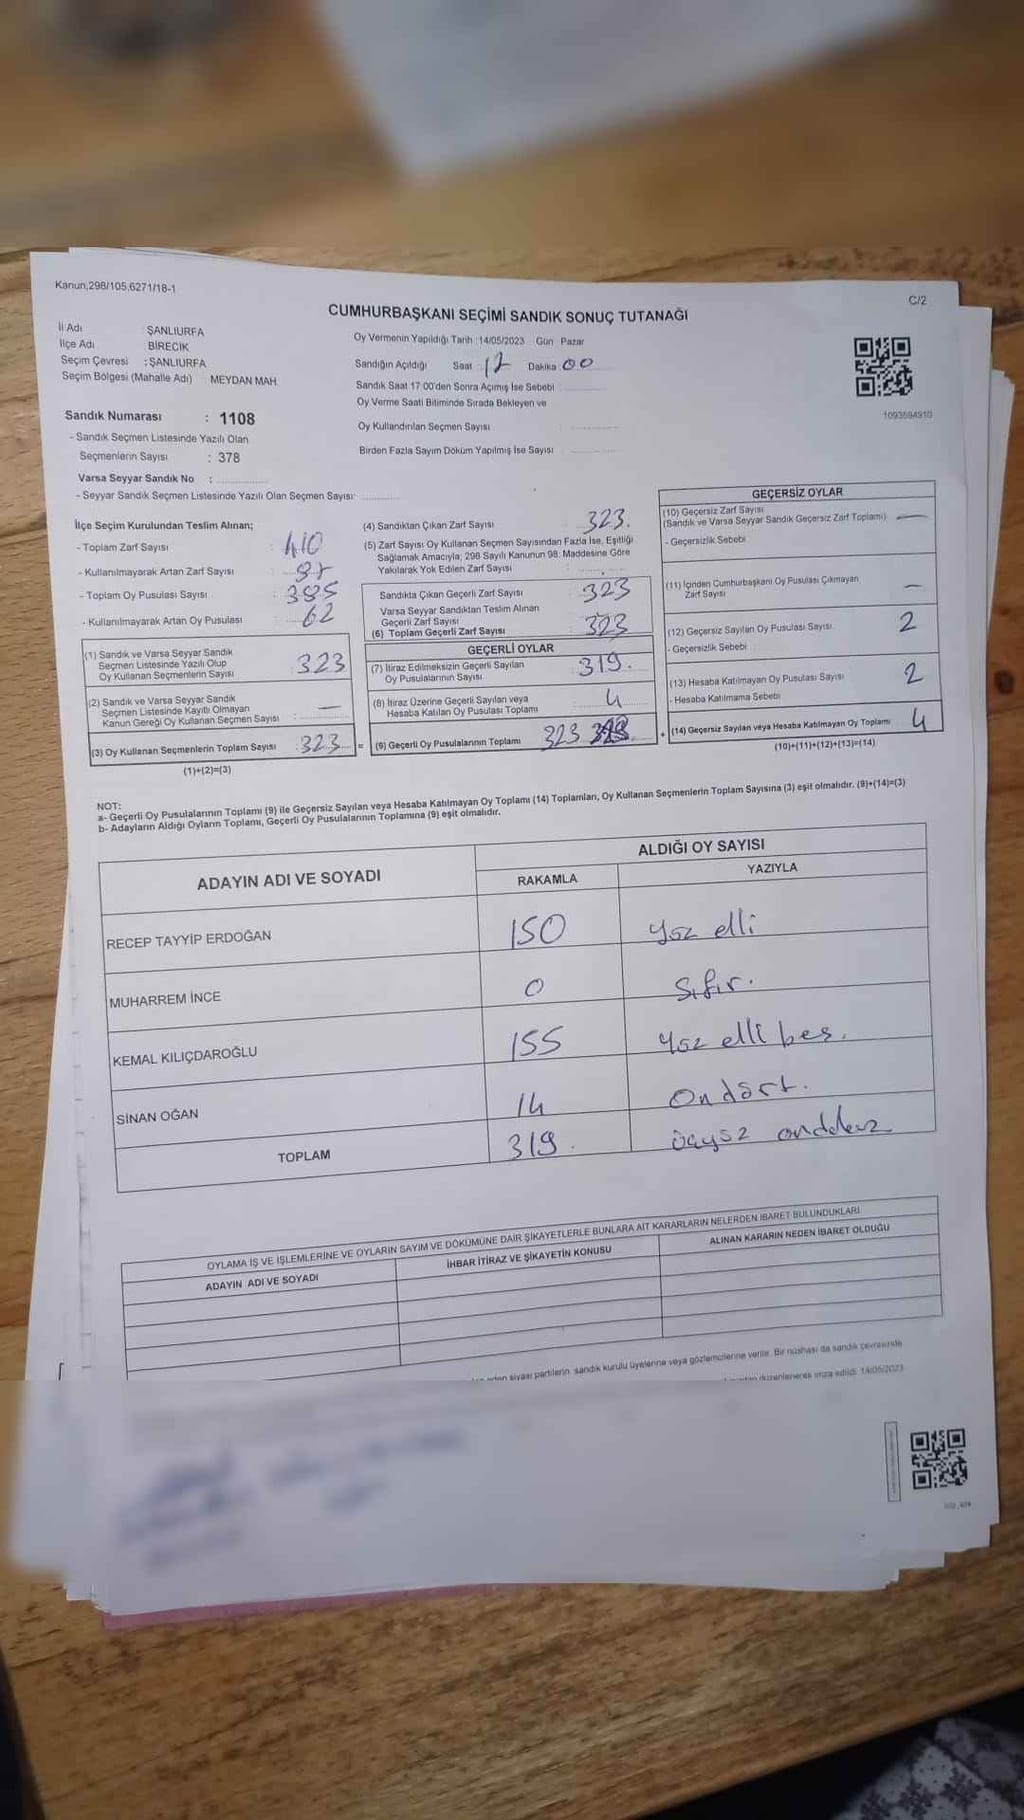 Kanun,298/105,6271/18-1
C/2
CUMHURBAŞKANI SEÇİMİ SANDIK SONUÇ TUTANAĞI
İl Adı : ŞANLIURFA
İlçe Adı : BİRECİK
Seçim Çevresi : ŞANLIURFA
Seçim Bölgesi (Mahalle Adı) : MEYDAN MAH.
Sandık Numarası : 1108
- Sandık Seçmen Listesinde Yazılı Olan
Seçmenlerin Sayısı : 378
Varsa Seyyar Sandık No :
- Seyyar Sandık Seçmen Listesinde Yazılı Olan Seçmen Sayısı:
Oy Vermenin Yapıldığı Tarih :14/05/2023 Gün Pazar
Sandığın Açıldığı Saat : 17 Dakika 00
Sandık Saat 17:00'den Sonra Açılmış İse Sebebi
Oy Verme Saati Bitiminde Sırada Bekleyen ve
Oy Kullandırılan Seçmen Sayısı
Birden Fazla Sayım Döküm Yapılmış İse Sayısı
1093594910
İlçe Seçim Kurulundan Teslim Alınan;
- Toplam Zarf Sayısı : 410
- Kullanılmayarak Artan Zarf Sayısı : 87
- Toplam Oy Pusulası Sayısı : 385
- Kullanılmayarak Artan Oy Pusulası : 62
(1) Sandık ve Varsa Seyyar Sandık
Seçmen Listesinde Yazılı Olup
Oy Kullanan Seçmenlerin Sayısı : 323
(2) Sandık ve Varsa Seyyar Sandık
Seçmen Listesinde Kayıtlı Olmayan
Kanun Gereği Oy Kullanan Seçmen Sayısı : —
(3) Oy Kullanan Seçmenlerin Toplam Sayısı : 323 =
(1)+(2)=(3)
(4) Sandıktan Çıkan Zarf Sayısı : 323.
(5) Zarf Sayısı Oy Kullanan Seçmen Sayısından Fazla İse, Eşitliği
Sağlamak Amacıyla; 298 Sayılı Kanunun 98. Maddesine Göre
Yakılarak Yok Edilen Zarf Sayısı :
Sandıkta Çıkan Geçerli Zarf Sayısı : 323
Varsa Seyyar Sandıktan Teslim Alınan
Geçerli Zarf Sayısı :
(6) Toplam Geçerli Zarf Sayısı : 323
GEÇERLİ OYLAR
(7) İtiraz Edilmeksizin Geçerli Sayılan
Oy Pusulalarının Sayısı : 319.
(8) İtiraz Üzerine Geçerli Sayılan veya
Hesaba Katılan Oy Pusulası Toplamı : 4
(9) Geçerli Oy Pusulalarının Toplamı 323 +
GEÇERSİZ OYLAR
(10) Geçersiz Zarf Sayısı
(Sandık ve Varsa Seyyar Sandık Geçersiz Zarf Toplamı) —
- Geçersizlik Sebebi
(11) İçinden Cumhurbaşkanı Oy Pusulası Çıkmayan
Zarf Sayısı —
(12) Geçersiz Sayılan Oy Pusulası Sayısı 2
- Geçersizlik Sebebi
(13) Hesaba Katılmayan Oy Pusulası Sayısı 2
- Hesaba Katılmama Sebebi
(14) Geçersiz Sayılan veya Hesaba Katılmayan Oy Toplamı 4
(10)+(11)+(12)+(13)=(14)
NOT:
a- Geçerli Oy Pusulalarının Toplamı (9) ile Geçersiz Sayılan veya Hesaba Katılmayan Oy Toplamı (14) Toplamları, Oy Kullanan Seçmenlerin Toplam Sayısına (3) eşit olmalıdır. (9)+(14)=(3)
b- Adayların Aldığı Oyların Toplamı, Geçerli Oy Pusulalarının Toplamına (9) eşit olmalıdır.
ADAYIN ADI VE SOYADI
ALDIĞI OY SAYISI
RAKAMLA YAZIYLA
RECEP TAYYİP ERDOĞAN 150 Yüz elli
MUHARREM İNCE 0 Sıfır.
KEMAL KILIÇDAROĞLU 155 Yüz elli beş.
SİNAN OĞAN 14 Ondört.
TOPLAM 319. üçyüz ondokuz
OYLAMA İŞ VE İŞLEMLERİNE VE OYLARIN SAYIM VE DÖKÜMÜNE DAİR ŞİKAYETLERLE BUNLARA AİT KARARLARIN NELERDEN İBARET BULUNDUKLARI
ADAYIN ADI VE SOYADI
İHBAR İTİRAZ VE ŞİKAYETİN KONUSU
ALINAN KARARIN NEDEN İBARET OLDUĞU
siyasi partilerin, sandık kurulu üyelerine veya gözlemcilerine verilir. Bir nüshası da sandık çevresinde
düzenlenerek imza edildi. 14/05/2023